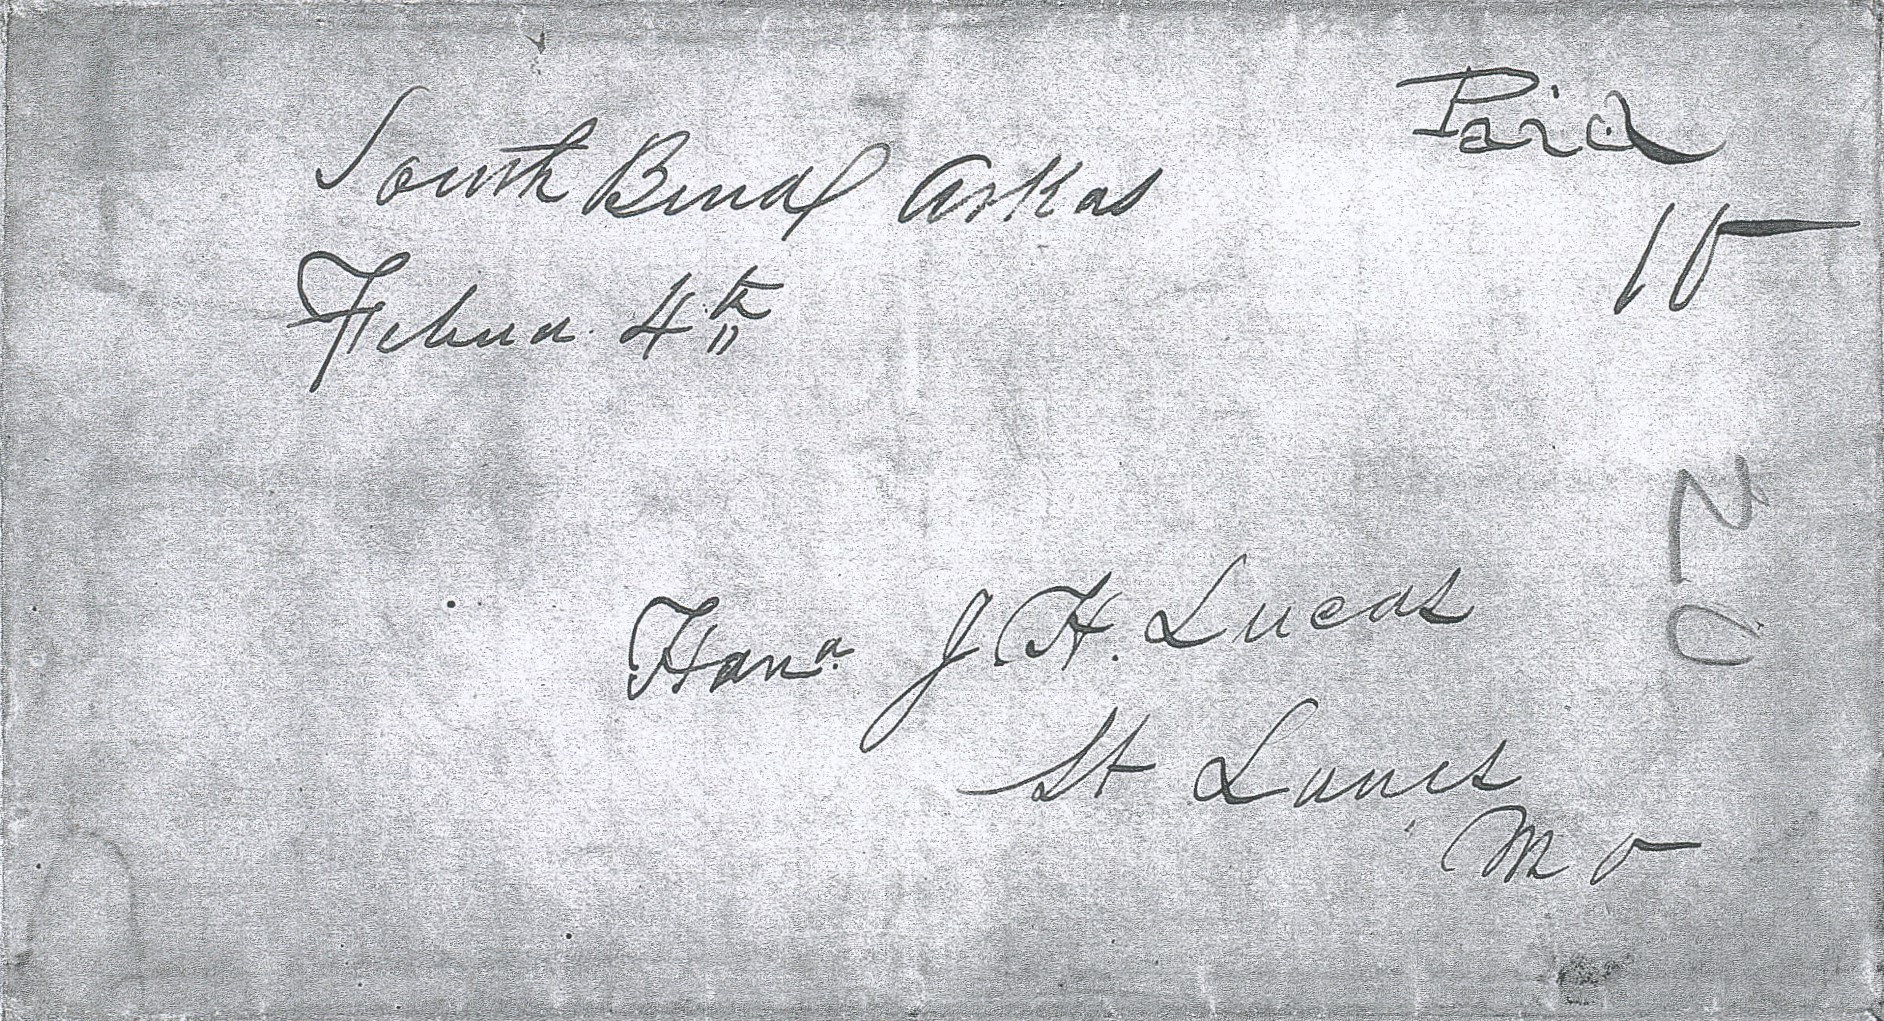 Paid
10
South Bend Arkas
Febua 4th
Hona. J. H. Lucas
St Louis
Mo